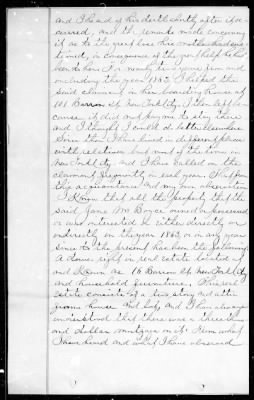 and I heard of his death shortly after it oc-
curred, and the remarks made concerning
it as to the great loss his mother had sus-
tained, in consequence of the great help he had
been to her. For nearly two years from and
including the year 1862, I helped the
said claimant in her boarding house at
101 Barrow St. New York City. I then left be-
cause it did not pay me to stay there
and I thought I could do better elsewhere.
Since then I have lived in different places
with relatives, but most of the time in
New York City and I have called on the
claimant frequently in each year. That from
this acquaintance and my own observation
I know that all the property that the
said Jane M. Boyce owned or possessed
or was interested in either directly or
indirectly in the year 1863, or in any year
since to the present has been the following:
A dower right in real estate located at
and known as 16 Barrow St. New York City
and household furniture. This real
estate consists of a two story and attic
frame house and lot, and I have always
understood that there was a three thou-
sand dollar mortgage on it. From what
I have heard and what I have observed